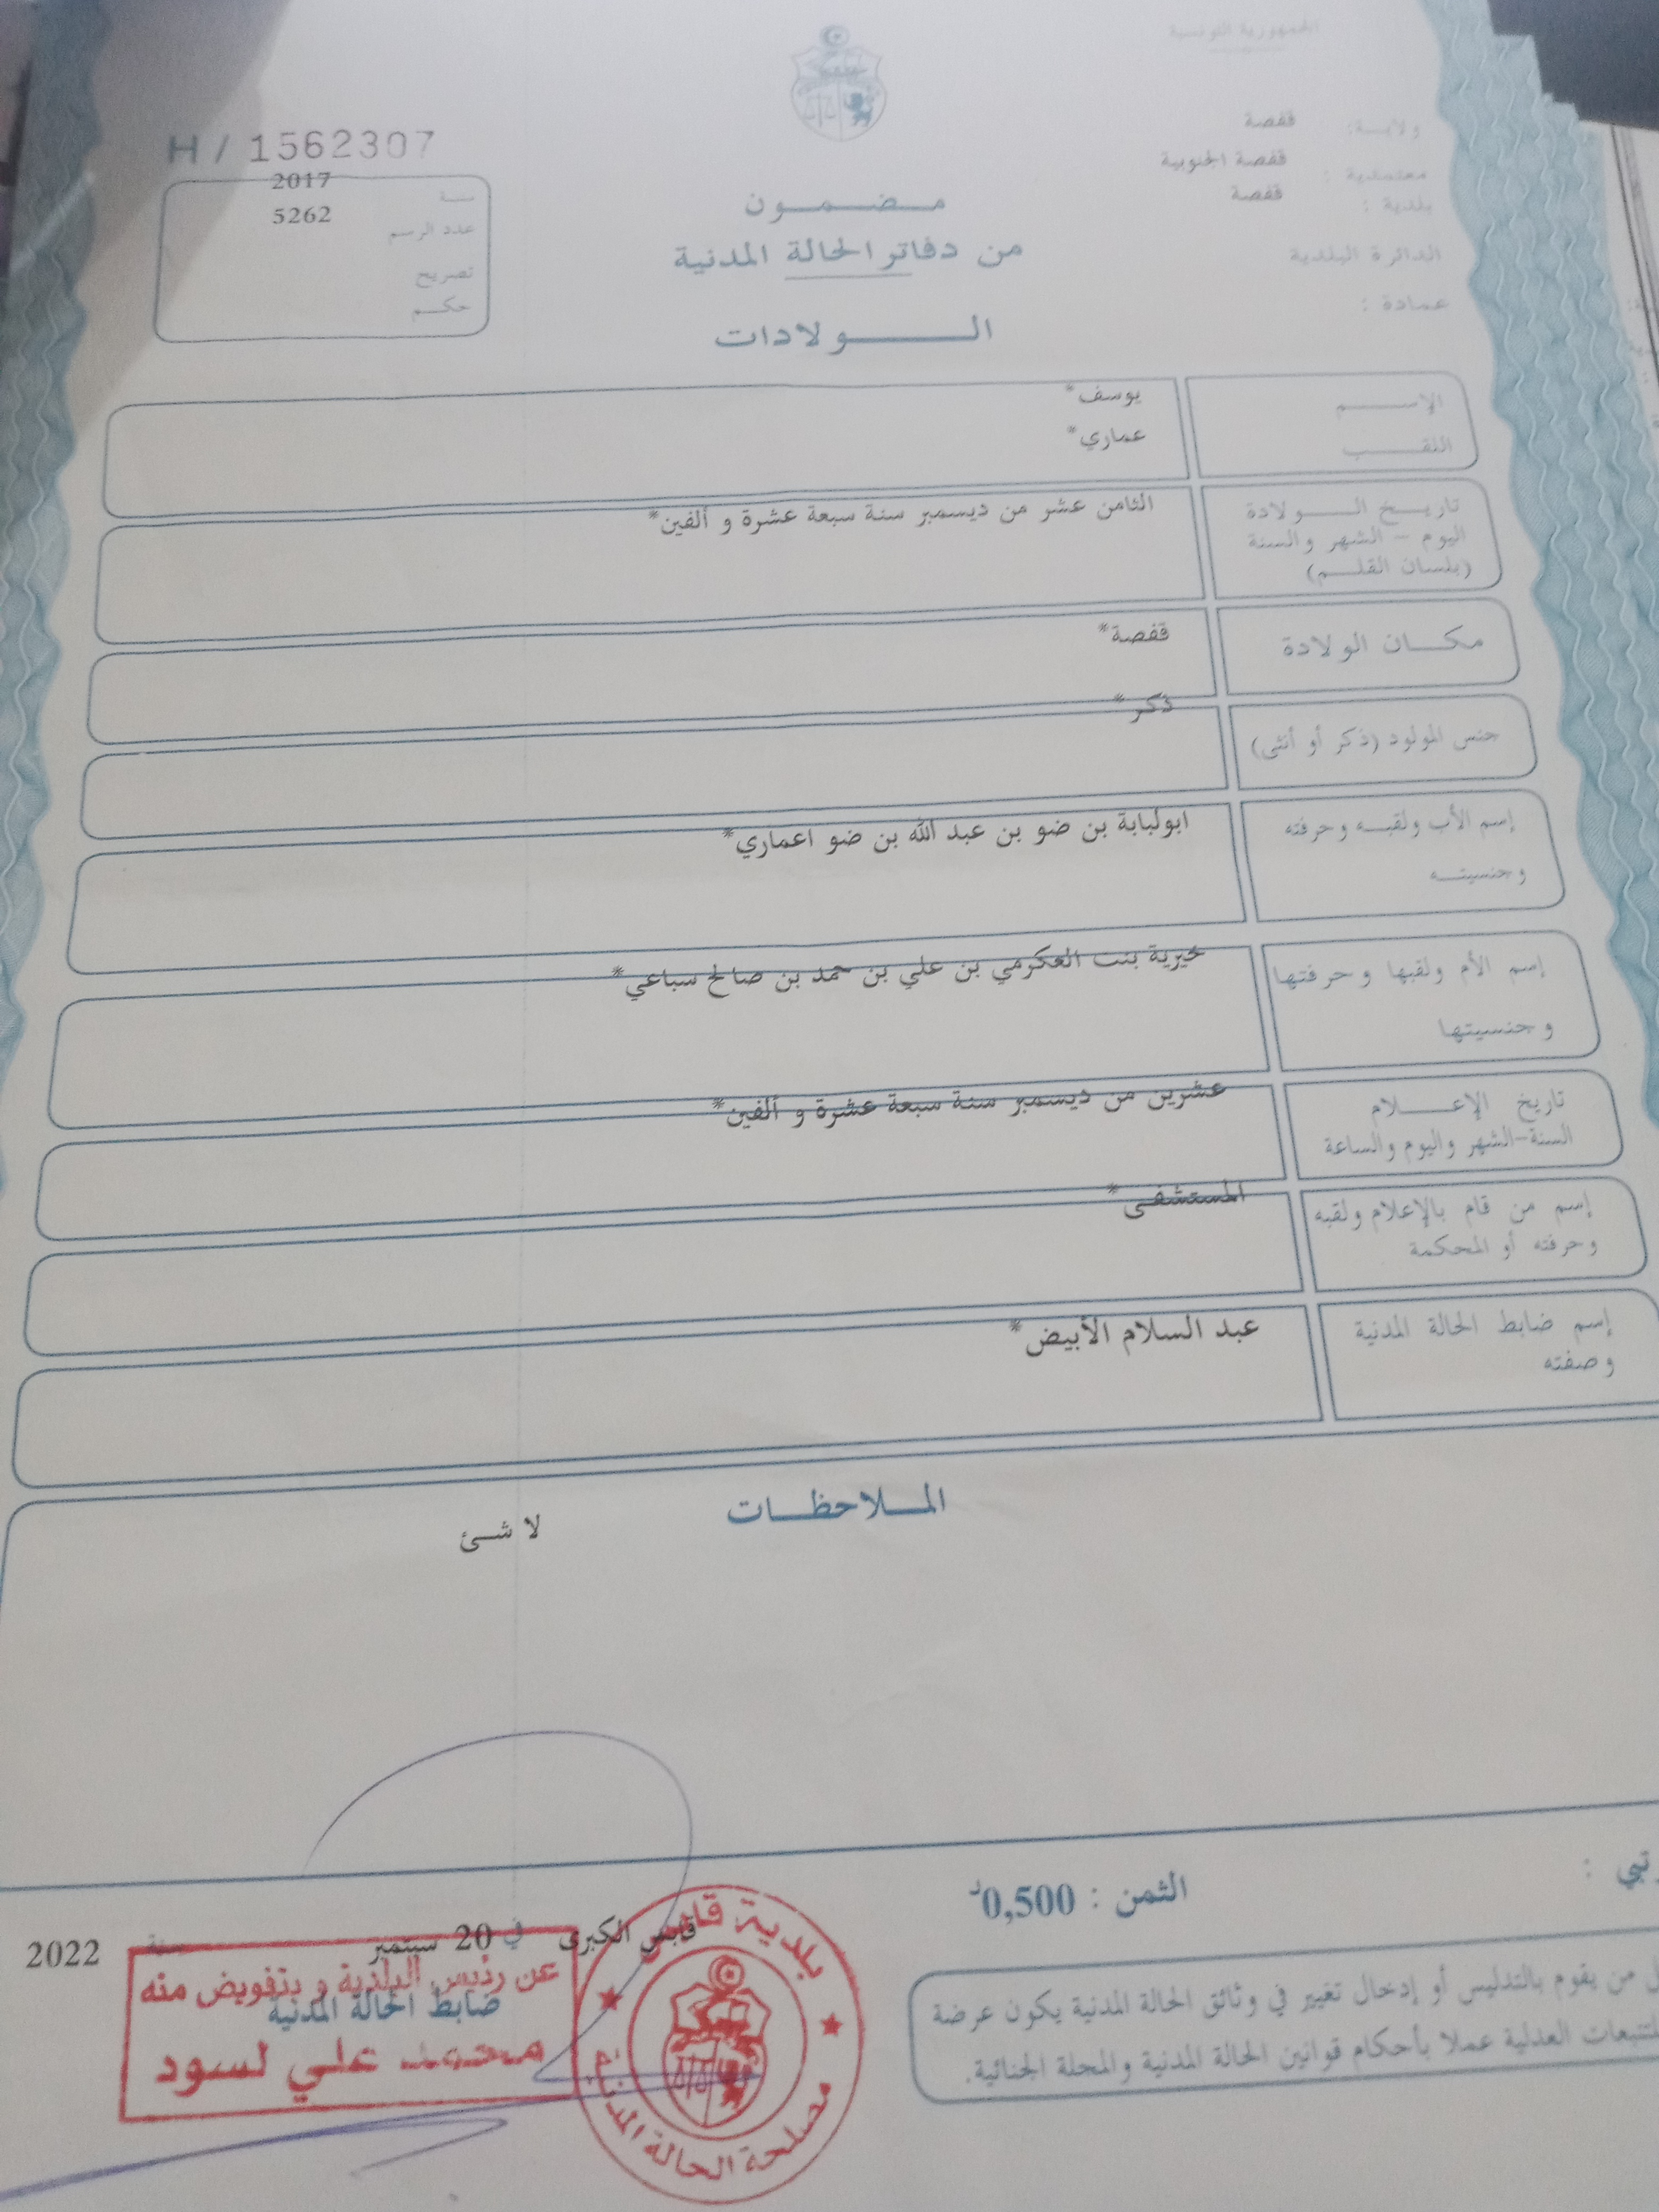 الجمهورية التونسية
ولاية: قفصة
معتمدية : قفصة الجنوبية
بلدية : قفصة
الدائرة البلدية
عمادة :
مضمون
من دفاتر الحالة المدنية
الولادات
H / 1562307
سنة 2017
عدد الرسم 5262
تصريح
حكم
الإسم يوسف*
اللقب عماري*
تاريخ الولادة
اليوم - الشهر والسنة
(بلسان القلم)
الثامن عشر من ديسمبر سنة سبعة عشرة و ألفين*
مكان الولادة قفصة*
جنس المولود (ذكر أو أنثى) ذكر*
إسم الأب ولقبه وحرفته
وجنسيته
ابولبابة بن ضو بن عبد الله بن ضو اعماري*
إسم الأم ولقبها وحرفتها
وجنسيتها
خيرية بنت العكرمي بن علي بن حمد بن صالح سباعي*
تاريخ الإعلام
السنة-الشهر واليوم والساعة
عشرين من ديسمبر سنة سبعة عشرة و ألفين*
إسم من قام بالإعلام ولقبه
وحرفته أو المحكمة
المستشفى*
إسم ضابط الحالة المدنية
وصفته
عبد السلام الأبيض*
الملاحظات
لا شئ
الثمن : 0,500د
قابس الكبرى في 20 سبتمبر سنة 2022
عن رئيس البلدية و بتفويض منه
ضابط الحالة المدنية
محمد علي لسود
بلدية قابس
مصلحة الحالة المدنية
من يقوم بالتدليس أو إدخال تغيير في وثائق الحالة المدنية يكون عرضة
للتتبعات العدلية عملا بأحكام قوانين الحالة المدنية والمجلة الجنائية.